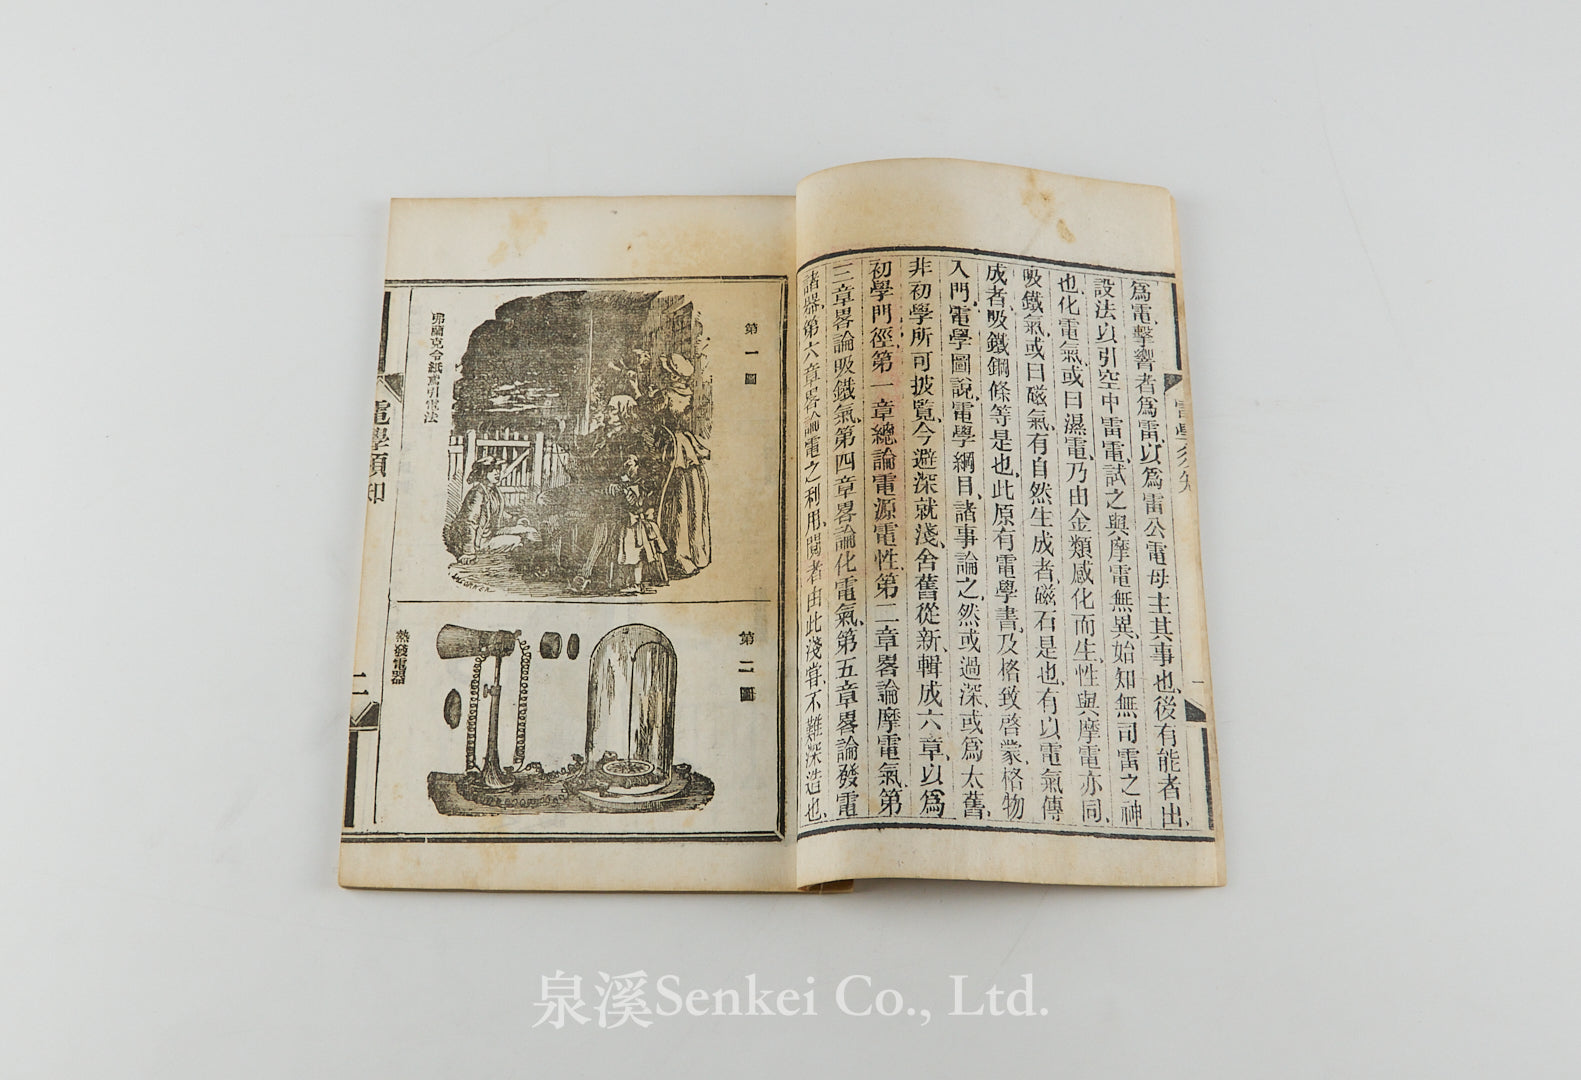 爲電擊響者爲雷以爲雷公電母主其事也後有能者出
設法以引空中雷電試之與摩電無異始知無司雷之神
也化電氣或曰濕電乃由金類感化而生性與摩電亦同
吸鐵氣或曰磁氣有自然生成者磁石是也有以電氣傳
成者吸鐵鋼條等是也此原有電學書及格致啓蒙格物
入門電學圖說電學綱目諸事論之然或過深或爲太舊
非初學所可披覽今避深就淺舍舊從新輯成六章以爲
初學門徑第一章總論電源電性第二章畧論摩電氣第
三章畧論吸鐵氣第四章畧論化電氣第五章畧論發電
諸器第六章畧論電之利用閱者由此淺嘗不難深造也
電學須知
一
第一圖
弗蘭克令紙鳶引電法
第二圖
熱發電器
電學須知
二
泉溪Senkei Co., Ltd.